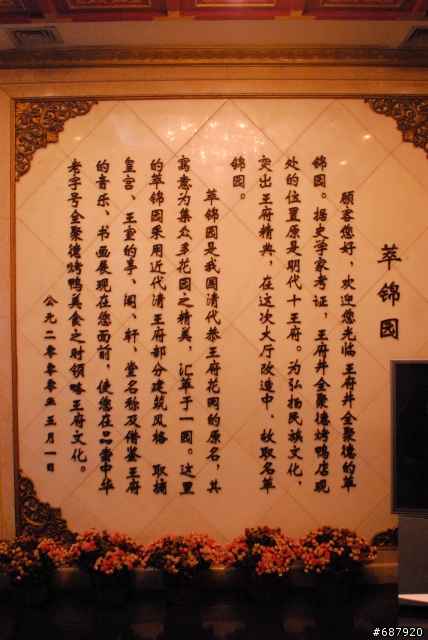 萃锦园
顾客您好，欢迎您光临王府井全聚德的萃
锦园。据史学家考证，王府井全聚德烤鸭店现
处的位置原是明代十王府。为弘扬民族文化，
突出王府精典，在这次大厅改造中，故取名萃
锦园。
萃锦园是我国清代恭王府花园的原名，其
寓意为集众多花园之精美，汇萃于一园。这里
的萃锦园采用近代清王府部分建筑风格 取摘
皇宫、王室的亭、阁、轩、堂名称及借鉴王府
的音乐、书画展现在您面前，使您在品尝中华
老字号全聚德烤鸭美食之时领略王府文化。
公元二零零五年五月一日
#687920